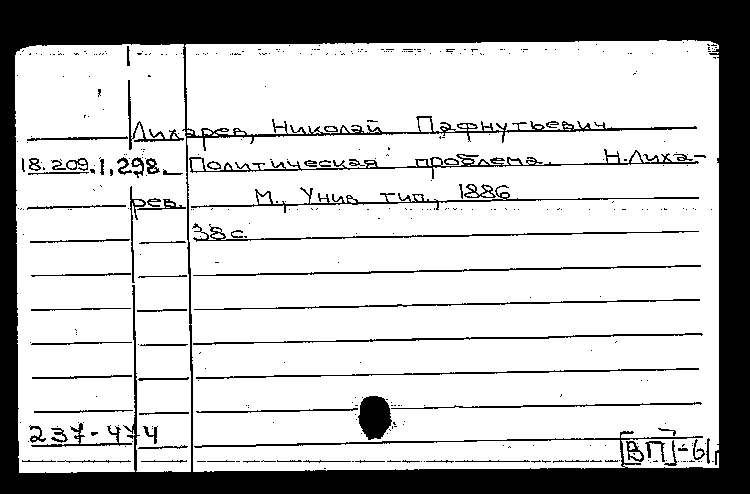 Лихарев, Николай Пафнутьевич
18.209.1.298. Политическая проблема. Н.Лиха-
рев. М., Унив. тип., 1886
38 с.
237-474
[ВП]-61